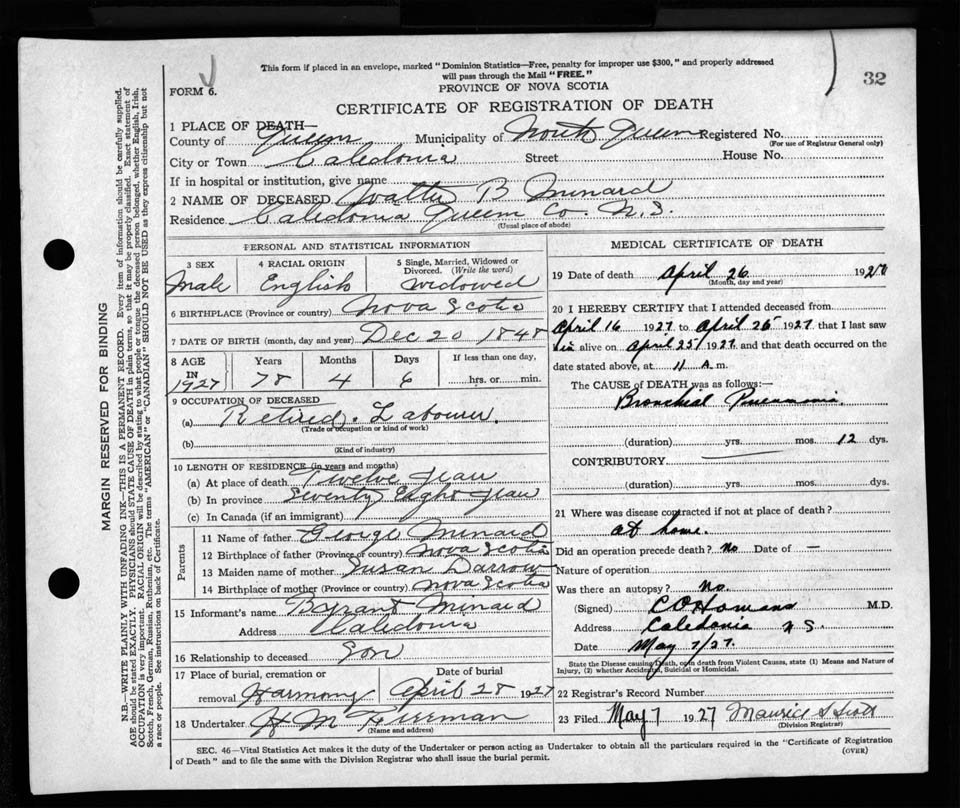 This form if placed in an envelope, marked "Dominion Statistics—Free, penalty for improper use $300," and properly addressed
will pass through the Mail "FREE."
32
FORM 6.
PROVINCE OF NOVA SCOTIA
CERTIFICATE OF REGISTRATION OF DEATH
1 PLACE OF DEATH—
County of Queen Municipality of North Queen Registered No.
(For use of Registrar General only)
City or Town Caledonia Street House No.
If in hospital or institution, give name
2 NAME OF DECEASED Walter B Minard
Residence Caledonia Queen Co. N.S.
(Usual place of abode)
PERSONAL AND STATISTICAL INFORMATION
3 SEX 4 RACIAL ORIGIN 5 Single, Married, Widowed or Divorced. (Write the word)
Male English Widowed
6 BIRTHPLACE (Province or country) Nova Scotia
7 DATE OF BIRTH (month, day and year) Dec 20 1848
8 AGE IN 1927 Years Months Days If less than one day,
78 4 6 hrs. or min.
9 OCCUPATION OF DECEASED
(a) Retired. Labourer.
(Trade or occupation or kind of work)
(b)
(Kind of industry)
10 LENGTH OF RESIDENCE (in years and months)
(a) At place of death Twelve Year
(b) In province Seventy Eight Year
(c) In Canada (if an immigrant)
Parents
11 Name of father George Minard
12 Birthplace of father (Province or country) Nova Scotia
13 Maiden name of mother Susan Darrow
14 Birthplace of mother (Province or country) Nova Scotia
15 Informant's name Minard
Address Caledonia
16 Relationship to deceased Son
17 Place of burial, cremation or Date of burial
removal Harmony April 28 1927
18 Undertaker H M Freeman
(Name and address)
MEDICAL CERTIFICATE OF DEATH
19 Date of death April 26 1927
(Month, day and year)
20 I HEREBY CERTIFY that I attended deceased from
April 16 1927 to April 26 1927 that I last saw
him alive on April 25 1927 and that death occurred on the
date stated above, at 11 A. m.
The CAUSE OF DEATH was as follows:—
Bronchial Pneumonia.
(duration) yrs. mos. 12 dys.
CONTRIBUTORY
(duration) yrs. mos. dys.
21 Where was disease contracted if not at place of death?
at home.
Did an operation precede death? No Date of —
Nature of operation
Was there an autopsy? No.
(Signed) M.D.
Address Caledonia N S.
Date May 7/27.
State the Disease causing Death, or in death from Violent Causes, state (1) Means and Nature of
Injury, (2) whether Accidental, Suicidal or Homicidal.
22 Registrar's Record Number
23 Filed May 7 1927 Maurice S Scott
(Division Registrar)
SEC. 46—Vital Statistics Act makes it the duty of the Undertaker or person acting as Undertaker to obtain all the particulars required in the "Certificate of Registration
of Death" and to file the same with the Division Registrar who shall issue the burial permit.
(OVER)
MARGIN RESERVED FOR BINDING
N.B.—WRITE PLAINLY WITH UNFADING INK—THIS IS A PERMANENT RECORD. Every item of information should be carefully supplied.
AGE should be stated EXACTLY. PHYSICIANS should STATE CAUSE OF DEATH in plain terms, so that it may be properly classified. Exact statement of
OCCUPATION is very important. RACIAL ORIGIN will be described by stating to what people or tongue the deceased person belonged, whether English, Irish,
Scotch, French, German, Russian, Ruthenian, etc. The terms "AMERICAN" or "CANADIAN" SHOULD NOT BE USED as they express citizenship but not
a race or people. See instructions on back of Certificate.